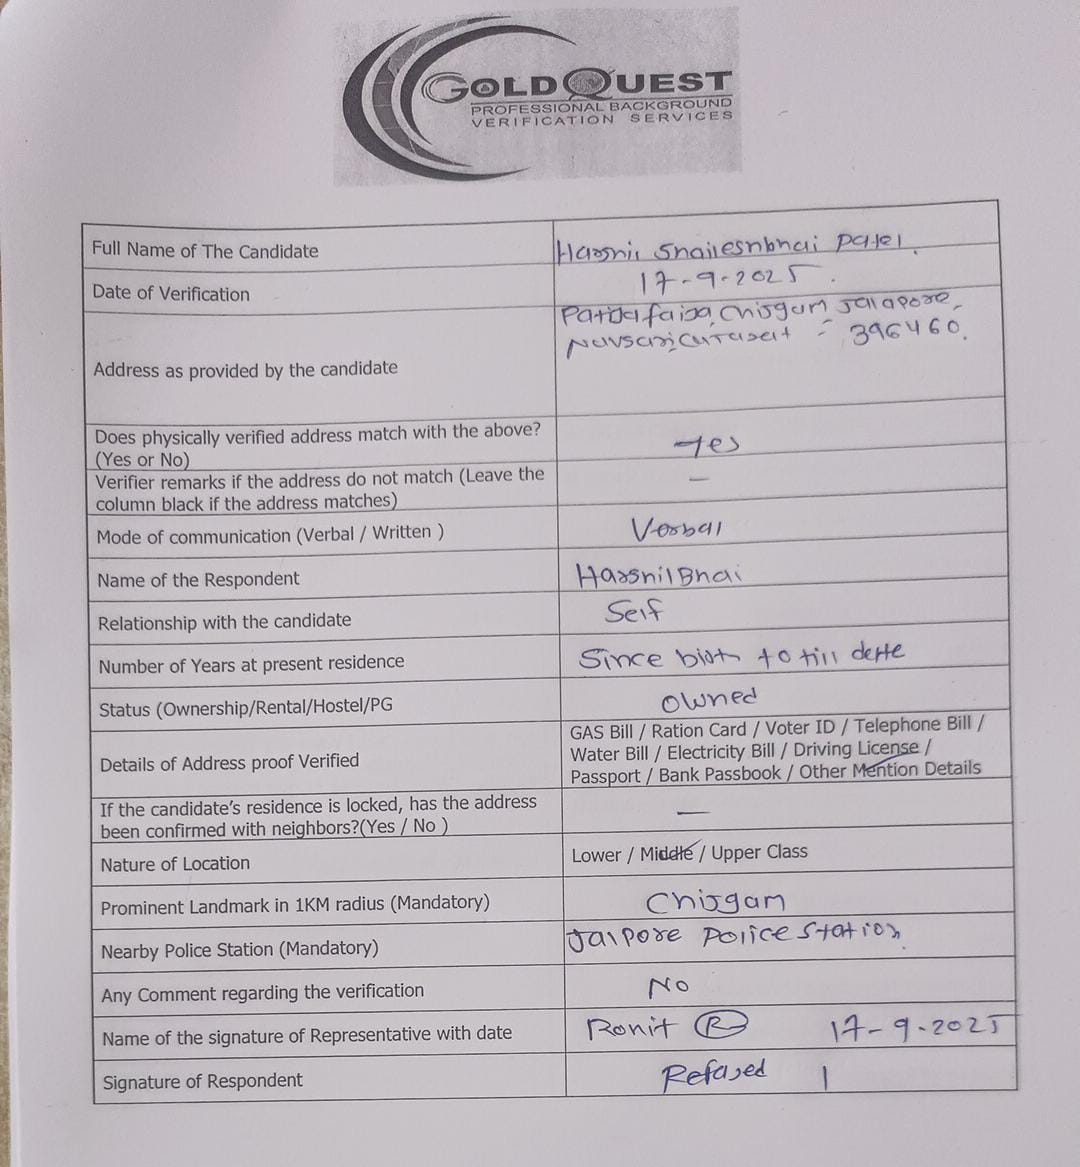 GOLDQUEST
PROFESSIONAL BACKGROUND
VERIFICATION SERVICES
Full Name of The Candidate
Harsnil Shaileshbhai Patel.
Date of Verification
17-9-2025.
Address as provided by the candidate
Chijgam Jalapore,
Navsari, Gujarat - 396460.
Does physically verified address match with the above?
(Yes or No)
Yes
Verifier remarks if the address do not match (Leave the
column black if the address matches)
-
Mode of communication (Verbal / Written )
Verbal
Name of the Respondent
HarsnilBhai
Relationship with the candidate
Self
Number of Years at present residence
Since birth to till date
Status (Ownership/Rental/Hostel/PG
Owned
Details of Address proof Verified
GAS Bill / Ration Card / Voter ID / Telephone Bill /
Water Bill / Electricity Bill / Driving License /
Passport / Bank Passbook / Other Mention Details
If the candidate's residence is locked, has the address
been confirmed with neighbors?(Yes / No )
—
Nature of Location
Lower / Middle / Upper Class
Prominent Landmark in 1KM radius (Mandatory)
Chijgam
Nearby Police Station (Mandatory)
Jalpore Police Station
Any Comment regarding the verification
No
Name of the signature of Representative with date
Ronit R 17-9-2025
Signature of Respondent
Refased